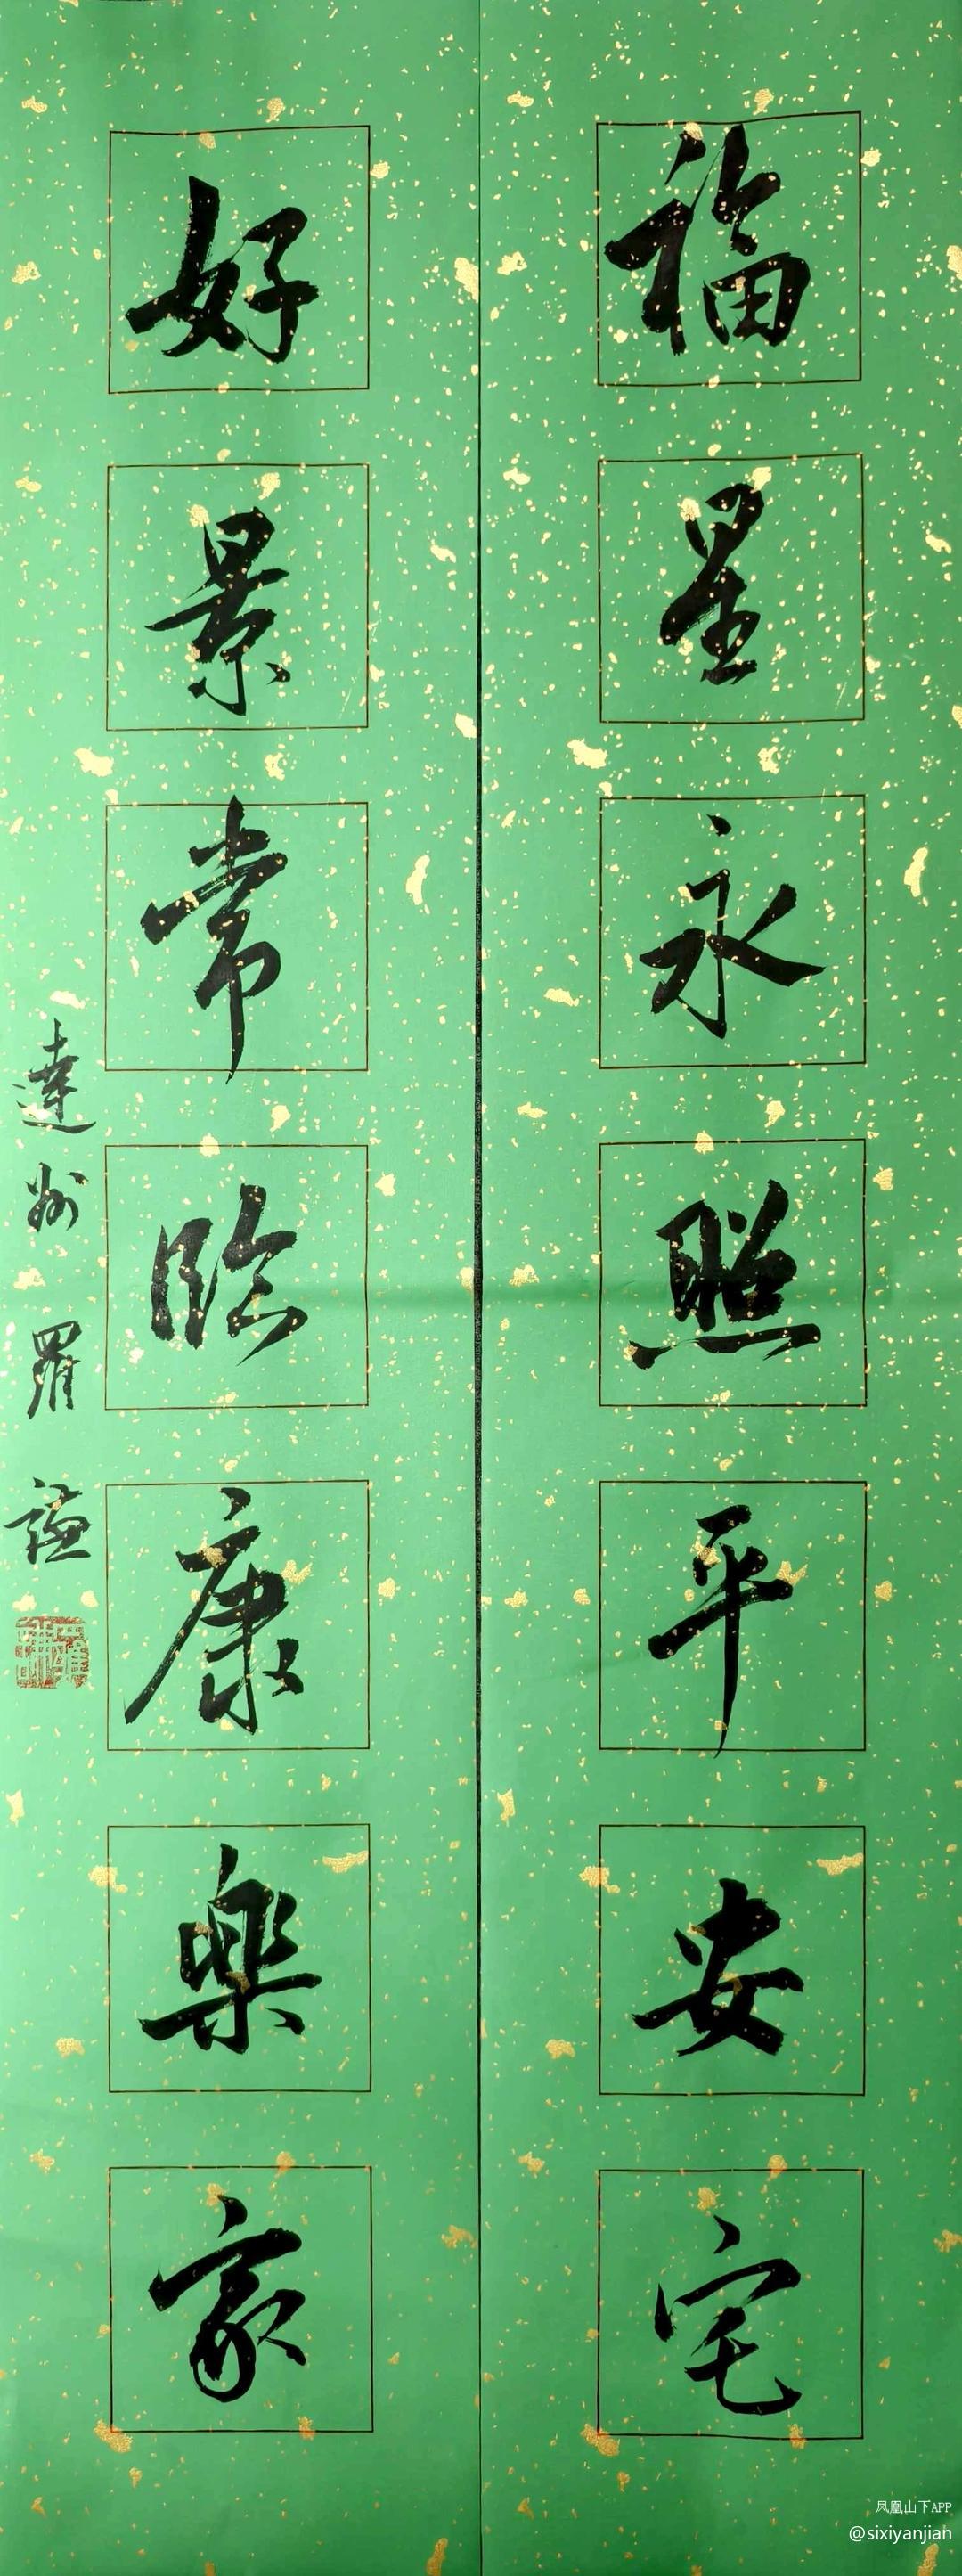 福星永照平安宅
好景常临康樂家
達州羅謙
凤凰山下APP
@sixiyanjian